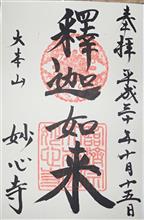 奉拝 平成三十年十月十五日
釋迦如来
大本山 妙心寺